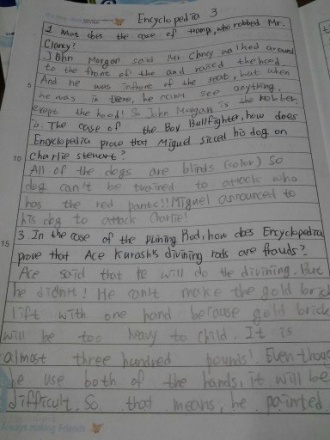 Encyclopedia 3
1 What does the case of tramp, who robbed Mr.
Clancy?
John Morgan said Mr Clancy walked around
to the front of the and raised the hood.
And he was infront of the truck, but when
he was in there, he can't see anything,
except the hood! So John Morgan is the robber.
2. The case of the Boy Bullfighter, how does
Encyclopedia prove that Miguel sicced his dog on
10
Charlie stewart?
All of the dogs are blinds (color) So
dog can't be trained to attack who
has the red pants!! Miguel announced to
his dog to attack Charlie!
15
3 In the case of the Divining Rod, how does Encyclopedia
prove that Ace Kurash's divining rods are frauds?
Ace said that he will do the divining. But
he didn't! He can't make the gold brick
lift with one hand because gold brick
will be too heavy to child. It is
almost three hundred pounds! Even though
he use both of the hands, it will be
difficult. So that means, he painted